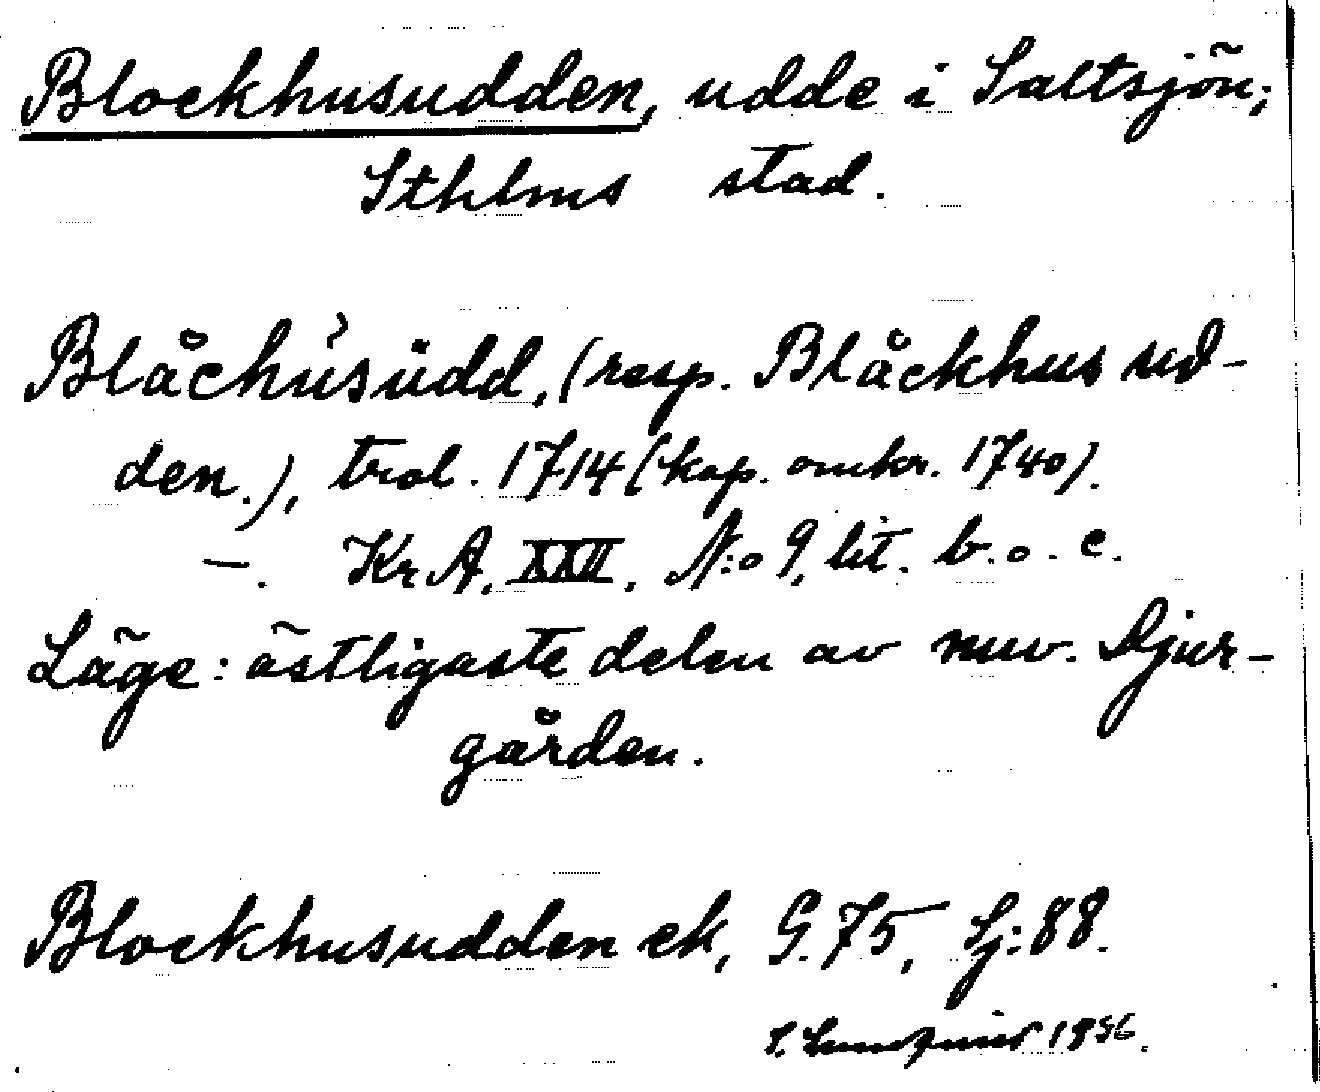 Blockhusudden, udde i Saltsjön;
Sthlms stad.
Blåchúsùdd, (resp. Blåckhus ud-
den.), trol. 1714 (kop. omkr. 1740).
—. KrA, XXII, N:o 9, lit. b. o. c.
Läge: östligaste delen av nuv. Djur-
gården.
Blockhusudden ek, G. 75, Sj: 88.
1956.